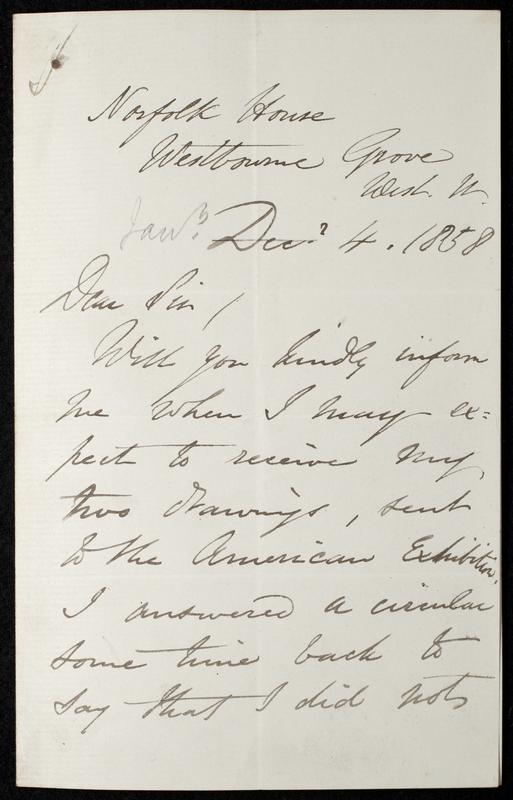 Norfolk House
Westbourne Grove
West. W.
Jany. Decr. 4. 1858
Dear Sir,
Will you kindly inform
me when I may ex=
pect to receive my
two drawings, sent
to the American Exhibition.
I answered a circular
some time back to
say that I did not